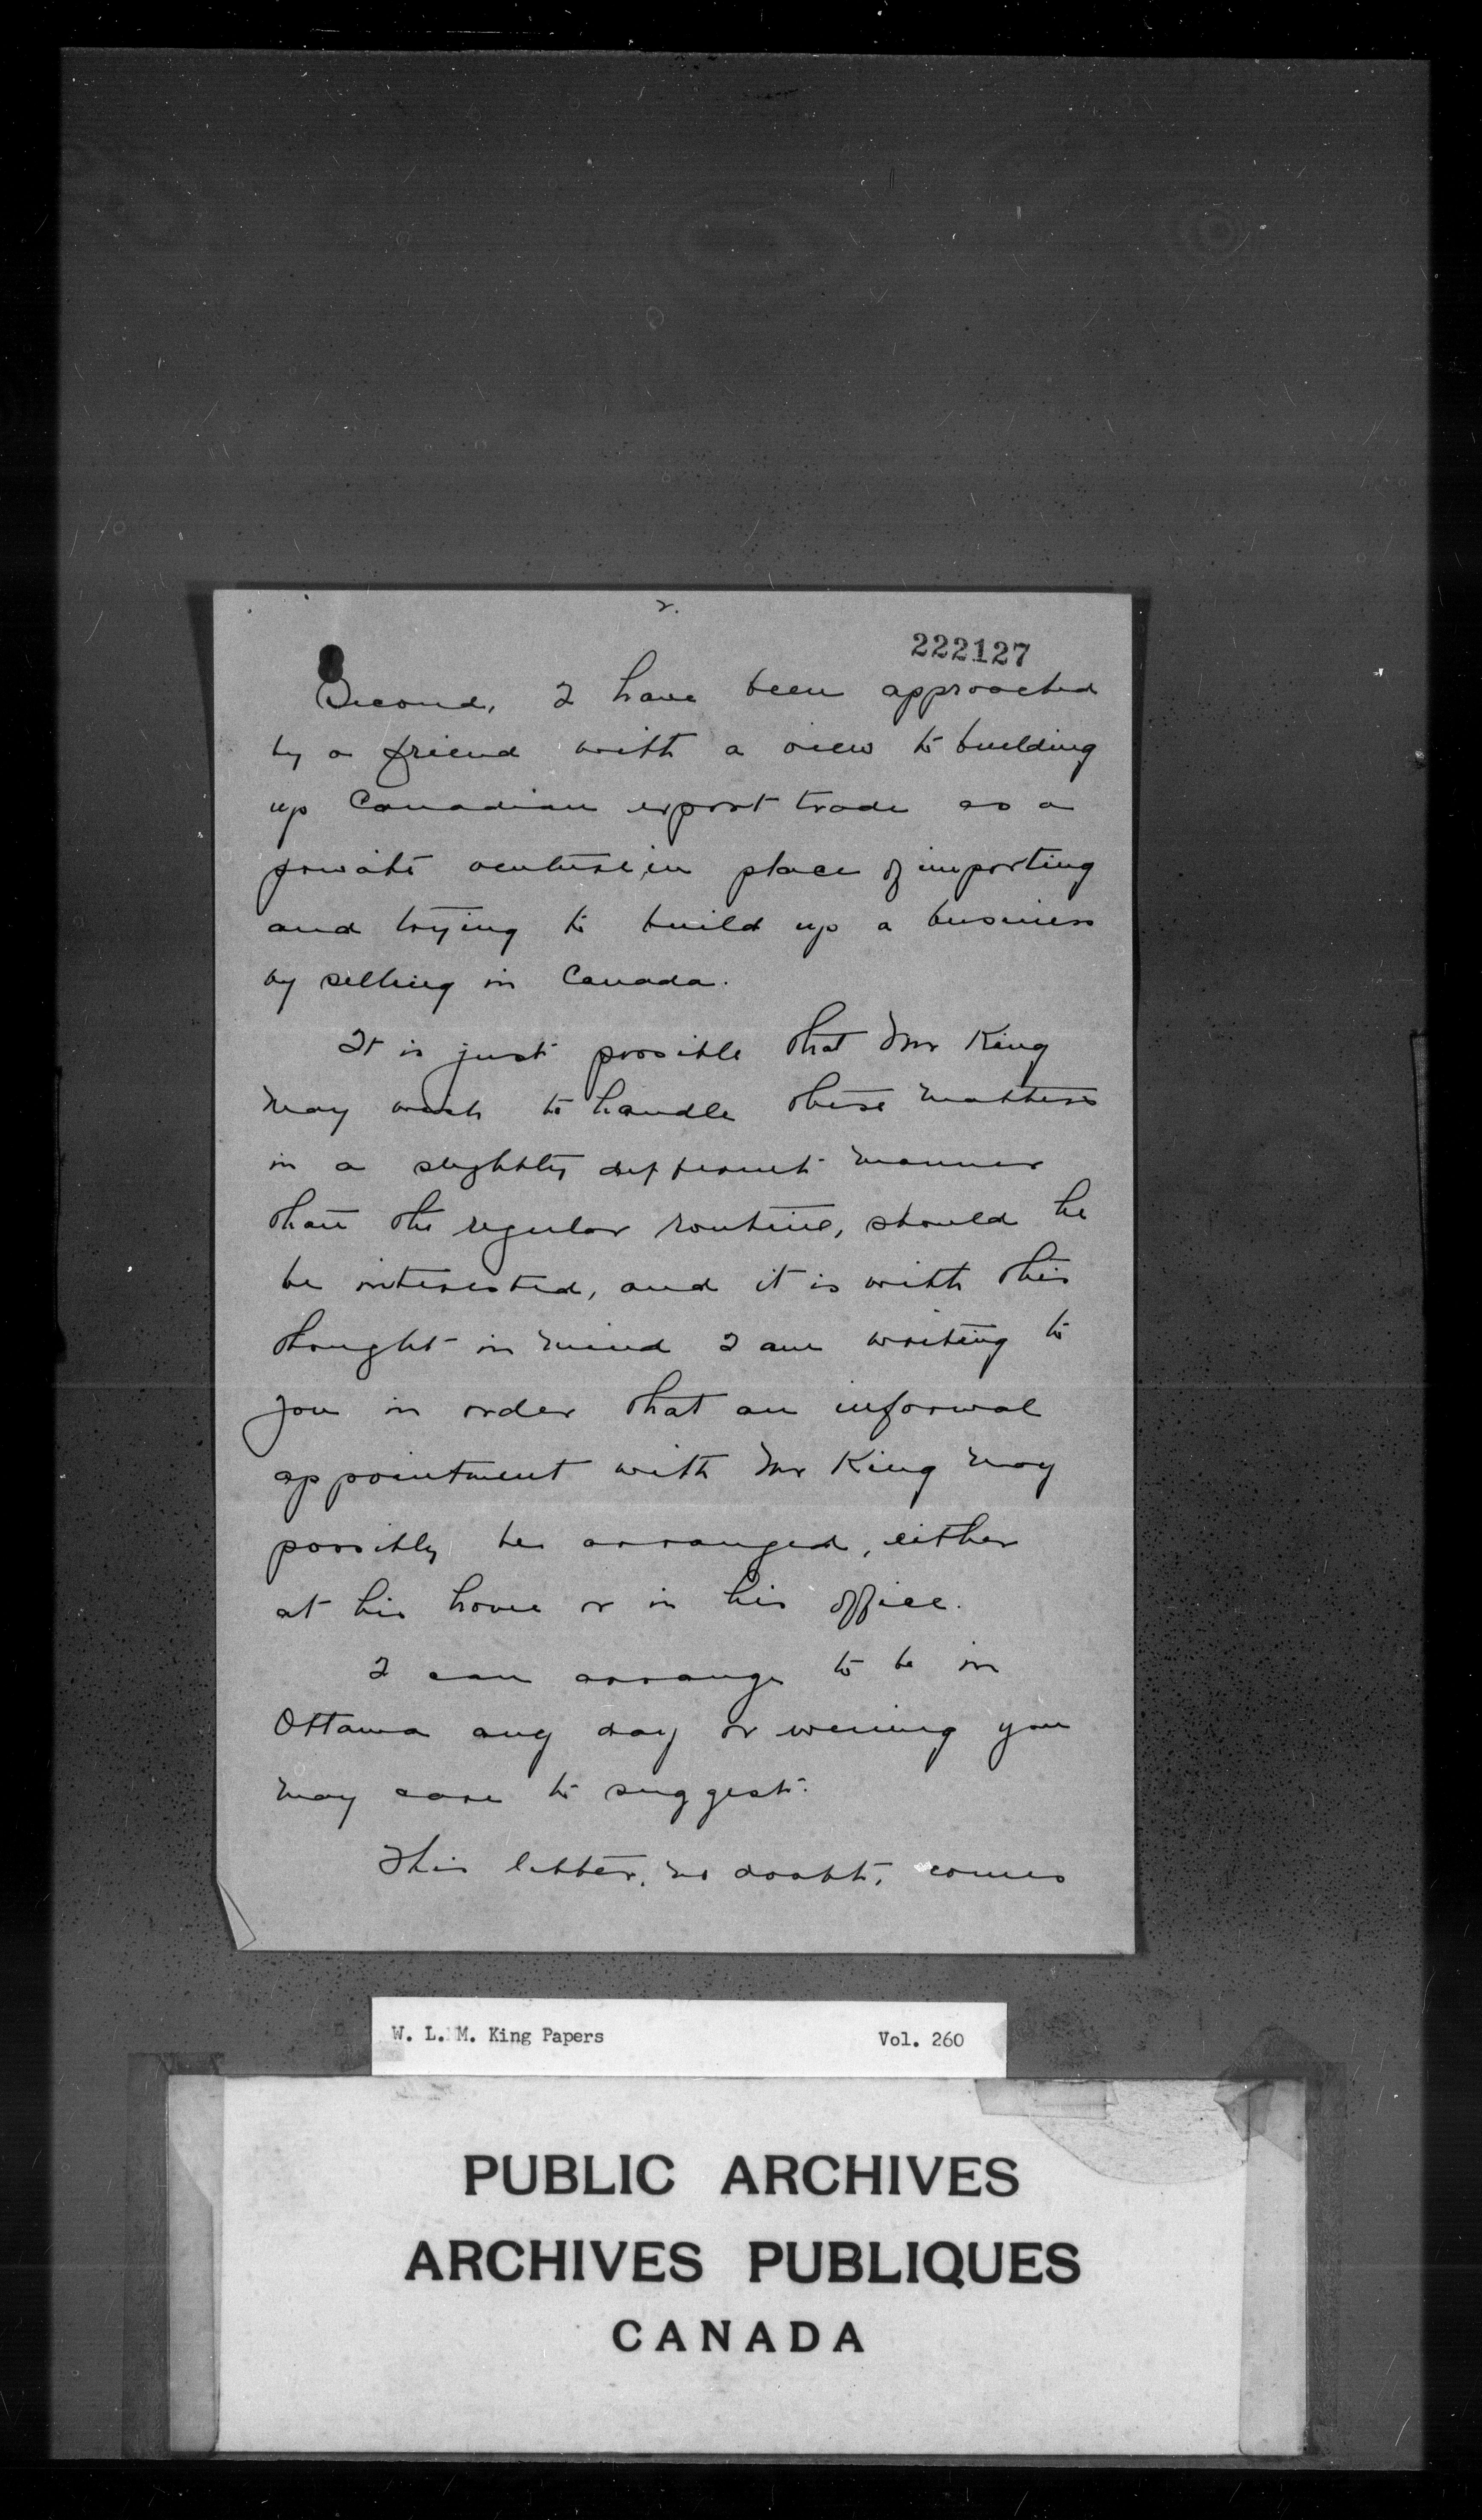 2.
222127
Second, I have been approached
by a friend with a view to building
up Canadian export trade as a
private venture, in place of importing
and trying to build up a business
by selling in Canada.
It is just possible that Mr King
may wish to handle these matters
in a slightly different manner
than the regular routine, should he
be interested, and it is with this
thought in mind I am writing to
you in order that an informal
appointment with Mr King may
possibly be arranged, either
at his home or in his office.
I can arrange to be in
Ottawa any day or evening you
may care to suggest.
This letter, no doubt, comes
W. L. M. King Papers Vol. 260
PUBLIC ARCHIVES
ARCHIVES PUBLIQUES
CANADA